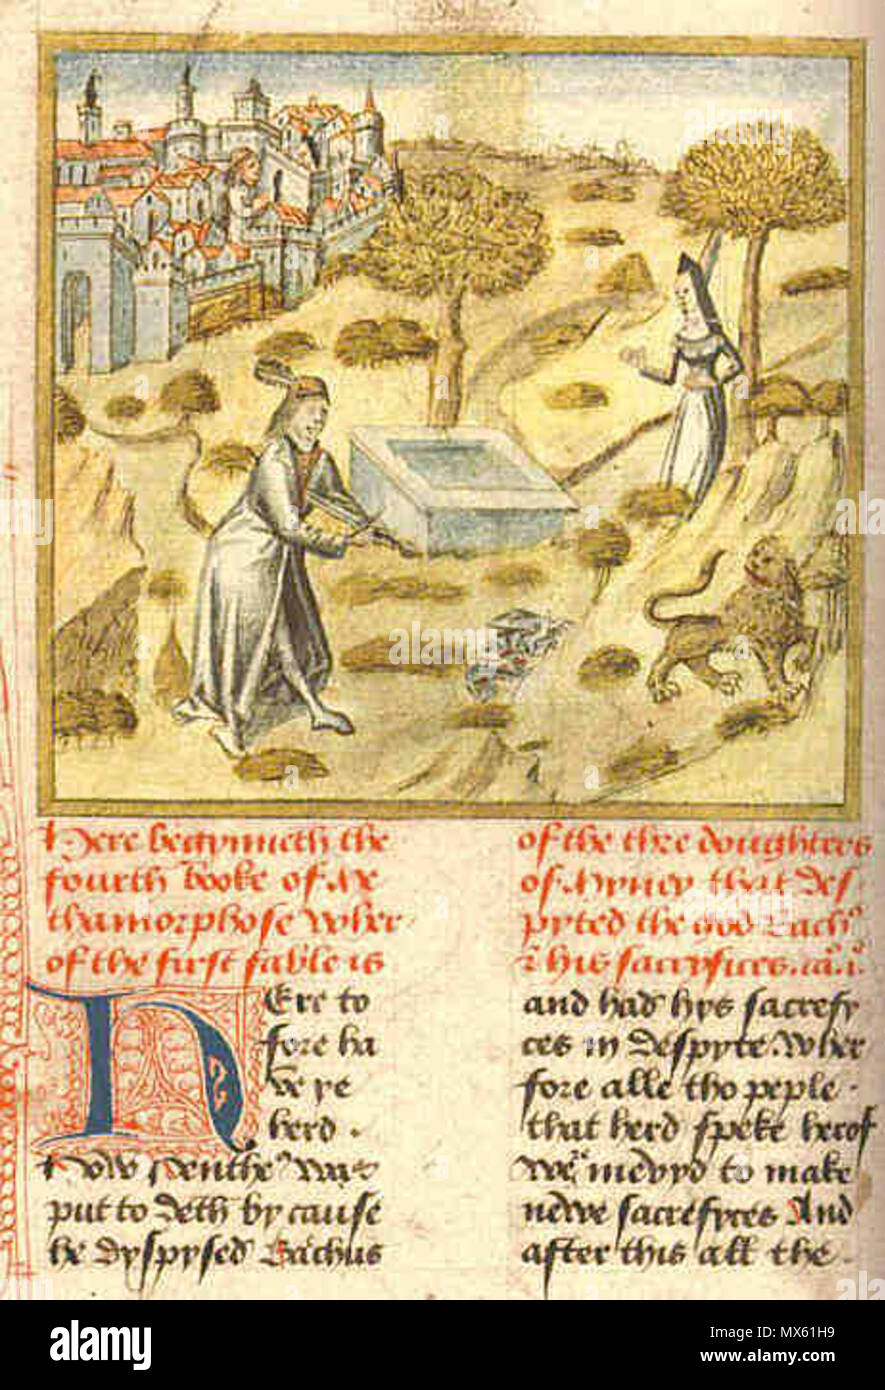 Here begynneth the
fourth booke of Me
thamorphose wher
of the first fable is
of the thre doughters
of Myney that des
pyted the god Bach⁹
his sacryfices.
HEre to
fore ha
ve ye
herd .
How Penthe⁹ was
put to deth by cause
he dyspysed Bachus
and had hys sacrefy
ces in despyte. Wher
fore alle tho peple .
that herd speke herof
mevyd to make
newe sacrefyces And
after this all the .
alamy
Image ID: MX61H9
www.alamy.com